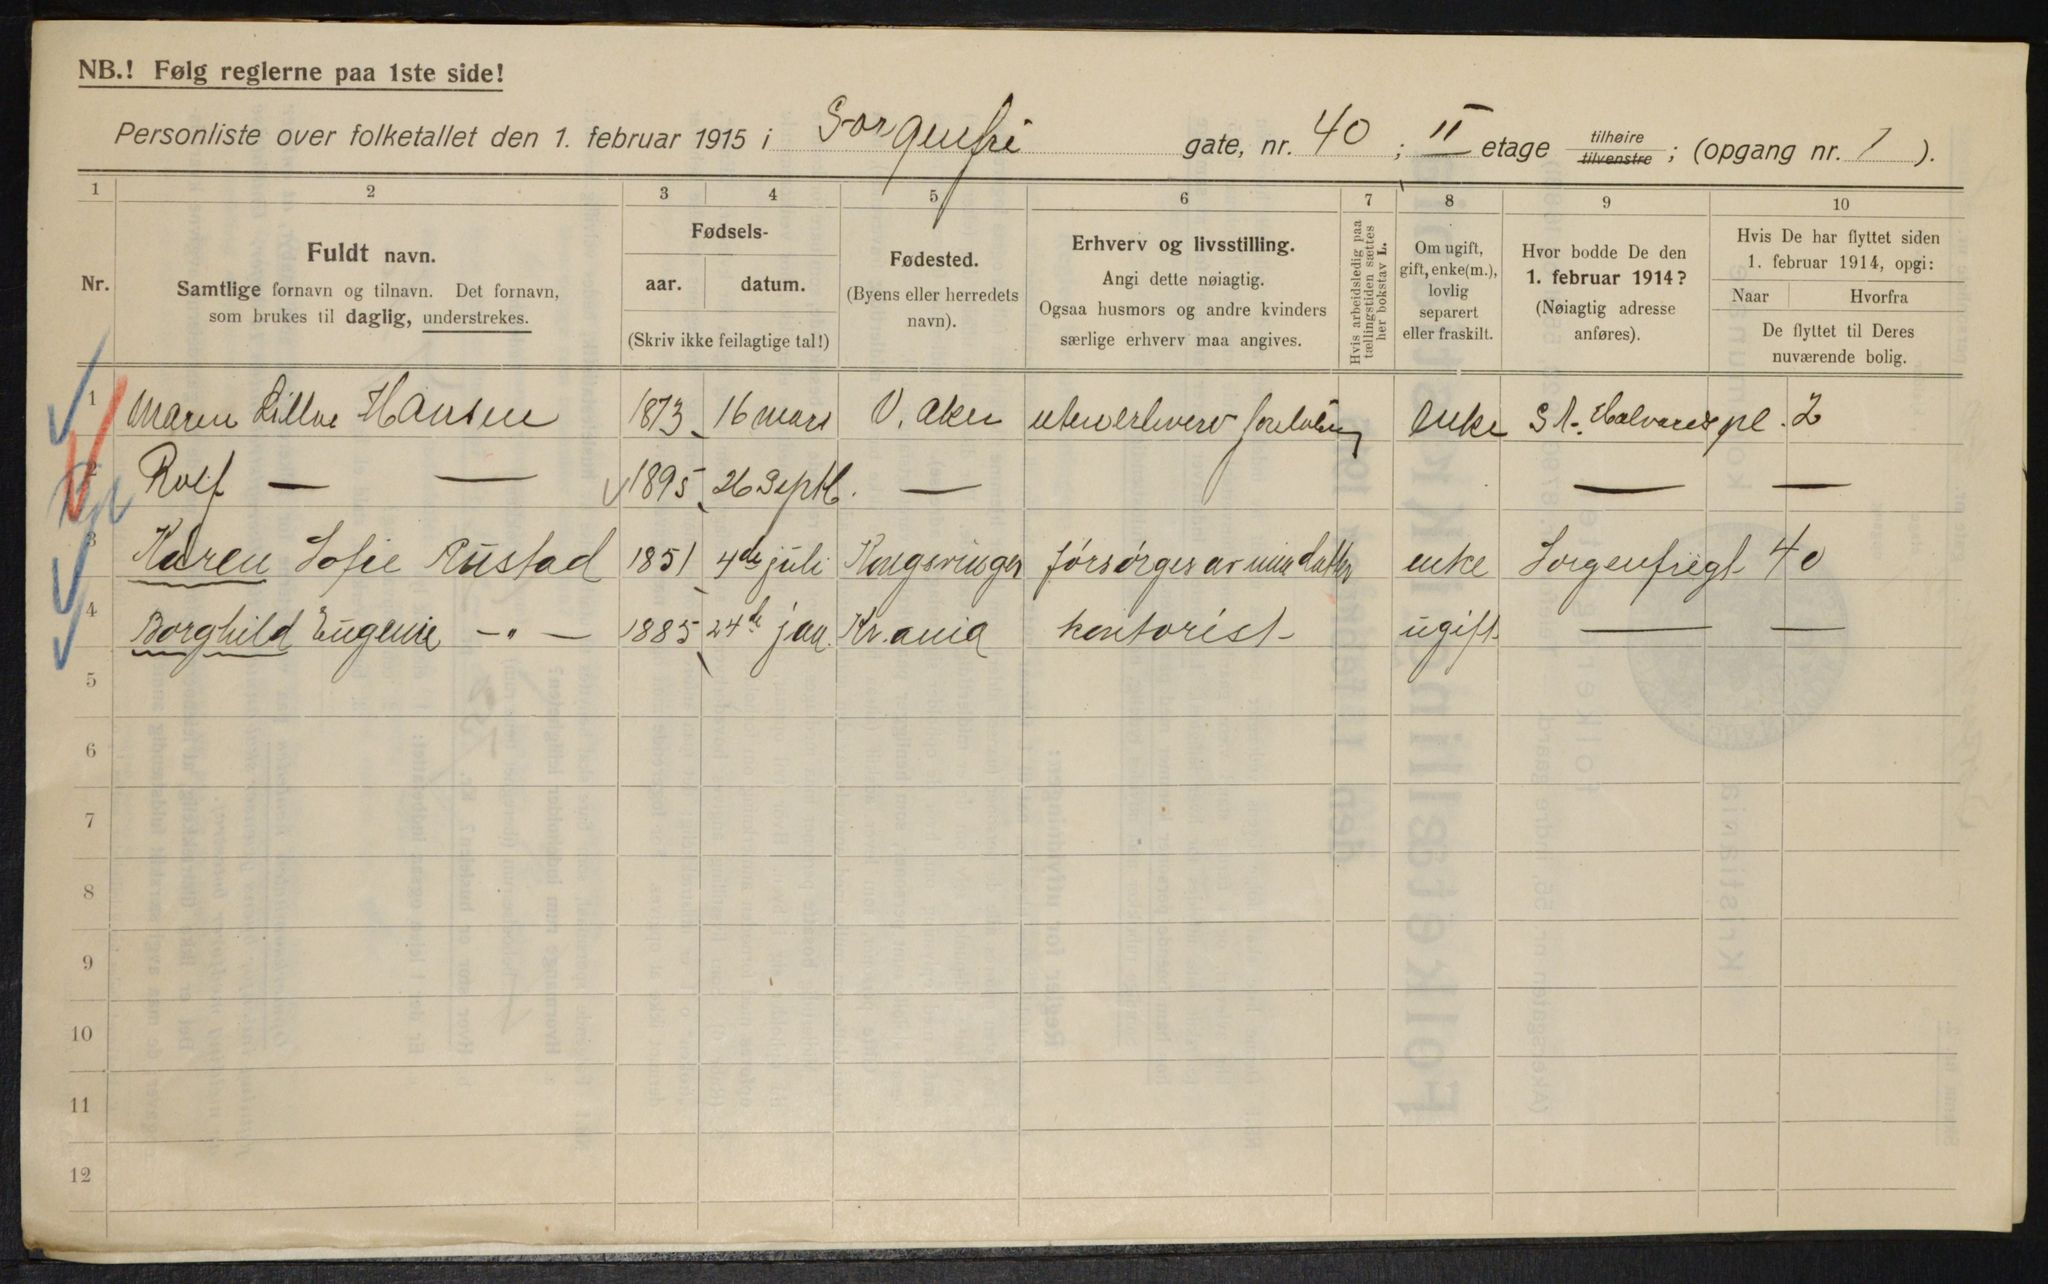 NB.! Følg reglerne paa 1ste side!
Personliste over folketallet den 1. februar 1915 i Sorgenfri gate, nr. 40 ; II etage tilhøire tilvenstre ; (opgang nr. 1 ).
1 2 3 4 5 6 7 8 9 10
Nr.
Fuldt navn.
Samtlige fornavn og tilnavn. Det fornavn,
som brukes til daglig, understrekes.
Fødsels-
aar. datum.
(Skriv ikke feilagtige tal!)
Fødested.
(Byens eller herredets
navn).
Erhverv og livsstilling.
Angi dette nøiagtig.
Ogsaa husmors og andre kvinders
særlige erhverv maa angives.
Hvis arbeidsledig paa
tællingstiden sættes
her bokstav L.
Om ugift,
gift, enke(m.),
lovlig
separert
eller fraskilt.
Hvor bodde De den
1. februar 1914?
(Nøiagtig adresse
anføres).
Hvis De har flyttet siden
1. februar 1914, opgi:
Naar Hvorfra
De flyttet til Deres
nuværende bolig.
1 Maren Hansen 1873 16 mars V. Aker uten erhverv enke St. Halvards pl. 2
2 Rolf — — 1895 26 Septb. — — —
3 Karen Sofie Rustad 1851 4de juli Kongsvinger forsørges av min datter enke Sorgenfrigt 40
4 Borghild Eugenie -"- 1885 24de jan. Kr.ania kontorist ugift — —
5
6
7
8
9
10
11
12